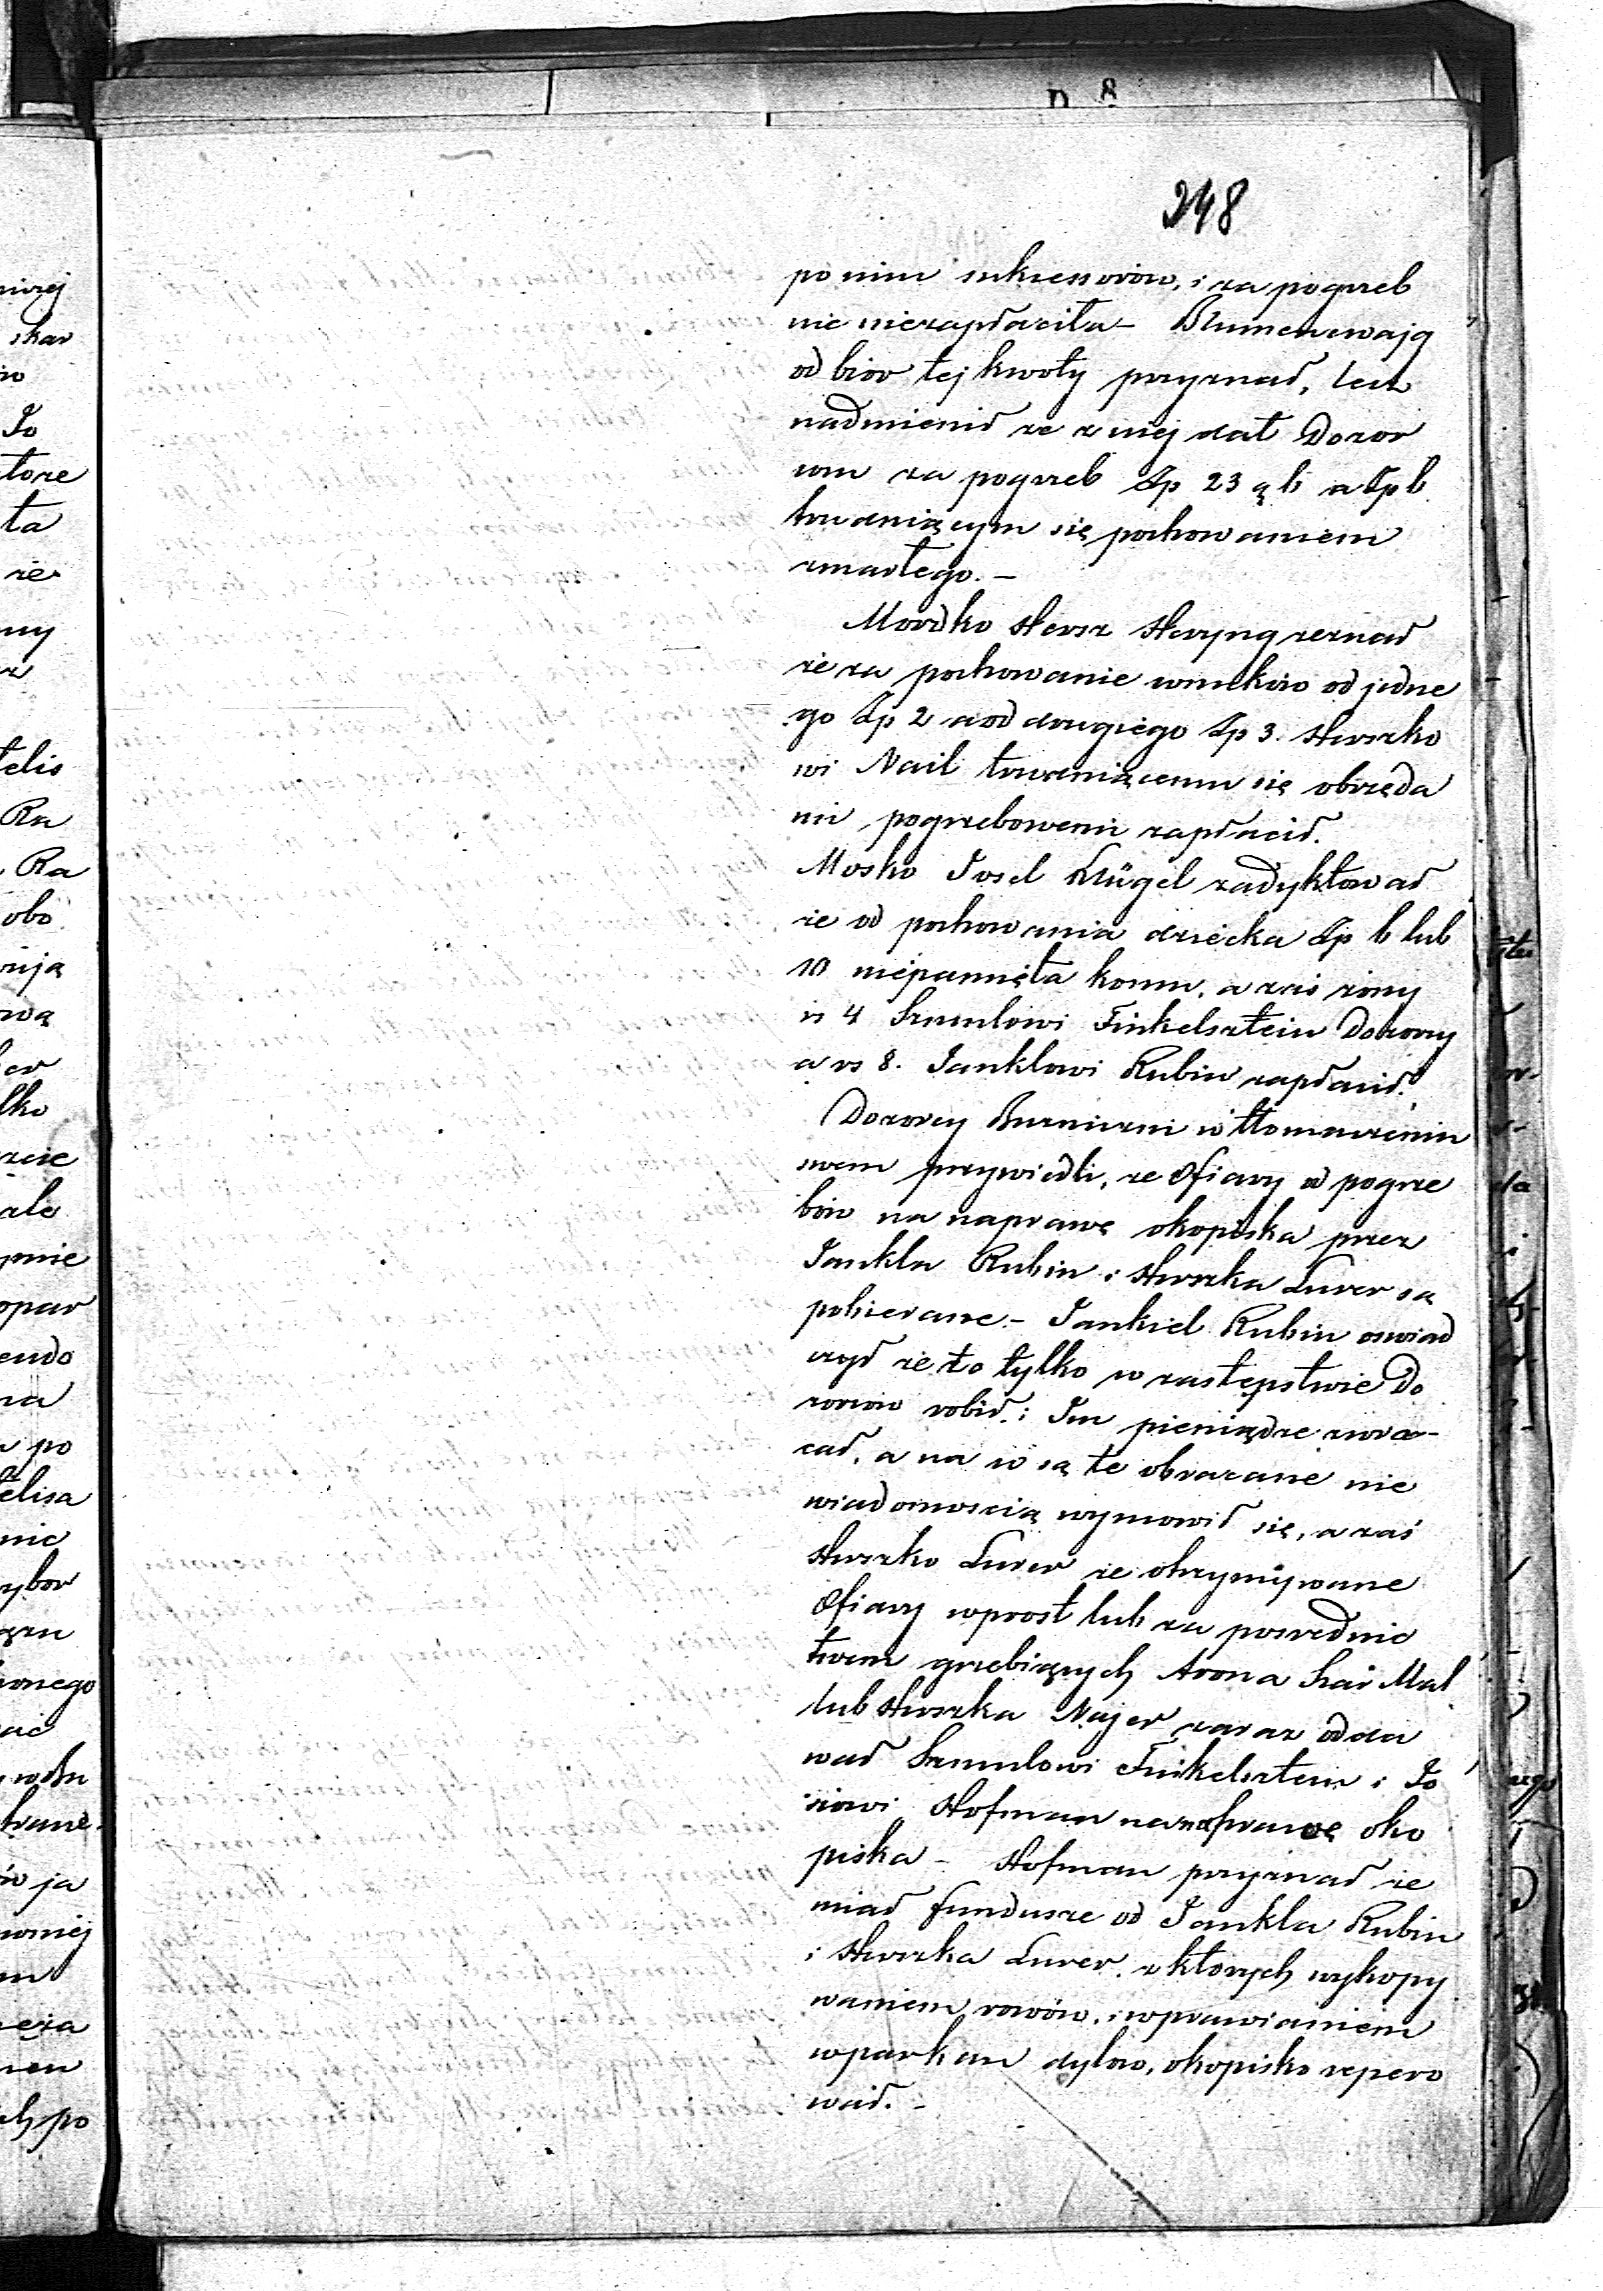 248
po nim sukcessorów, i za pogrzeb
nic niezapłaciła – Blumencwajg
odbior tej kwoty przyznał, lecz
nadmienił ze z niej dał Dozor
com za pogrzeb Zp 23 g 6 a Zp 6
trudniącym się pochowaniem
zmarłego. –
Mordko Hersz Heryng zeznał
ze za pochowanie wnuków od jedne
go Zp 2 a od drugiego Zp 3. Herszko
wi Nail trudniącemu się obrzęda
mi pogrzebowemi zapłacił.
Mosko Josel Klügel zadyktował
ze od pochowania dziecka Zp 6 lub
10 niepamięta komu, a zaś żony
rs 4 Szmulowi Finkelsztein Dozorcy
a rs 8. Janklowi Rubin zapłacił.
Dozorcy Buzniczni w tłomaczeniu
swem przywiedli, ze Ofiary od pogrze
bów na naprawę okopiska przez
Jankla Rubin i Herszka Lurer są
pobierane – Jankiel Rubin oswiad
czył ze to tylko w zastępstwie Do
zorców robił i Im pieniądze zwra-
cał, a na co są te obracane nie
wiadomoscią wymowił się, a zaś
Herszko Lurer ze otrzymywane
Ofiary wprost lub za posrednic
twem grzebiących Arona Szai Mal
lub Herszka Najer zaraz odda
wał Szmulowi Finkelsztein i Jo
siowi Hofman na naprawę oko
piska – Hofman przyznał ze
miał fundusze od Jankla Rubin
i Herszka Lurer z ktorych wykopy
waniem rowów, i wprawianiem
w parkan dylow, okopisko repero
wał. –